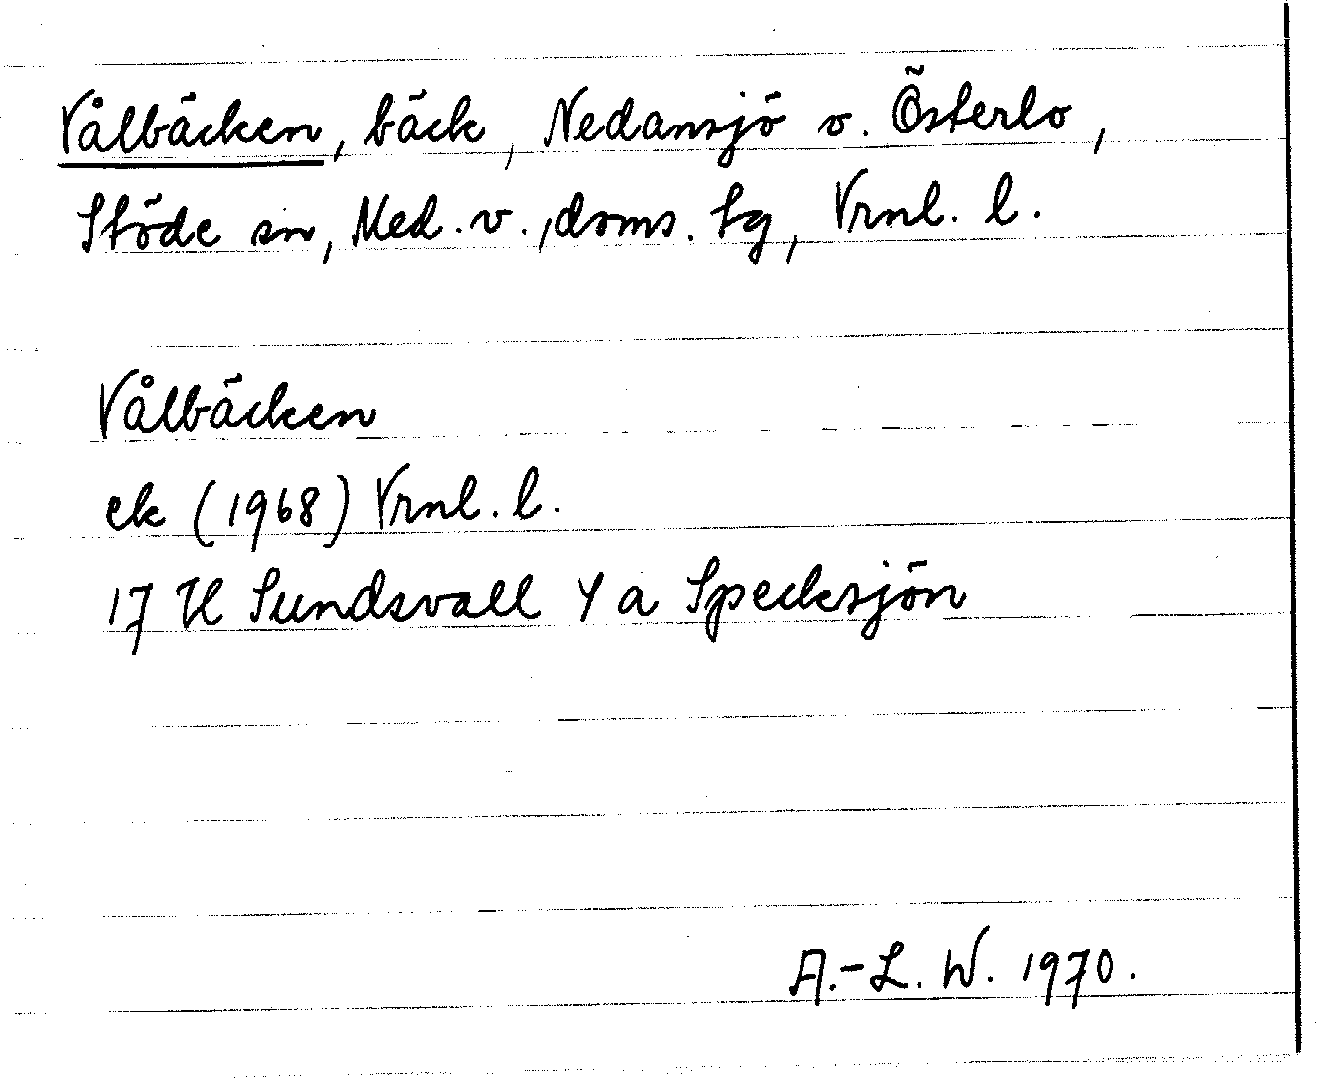 Vålbäcken, bäck, Nedansjö o. Österlo,
Stöde sn, Med. v., doms. tg, Vrnl. l.
Vålbäcken
ek (1968) Vrnl. l.
17 H Sundsvall 4 a Specksjön
A.-L. W. 1970.